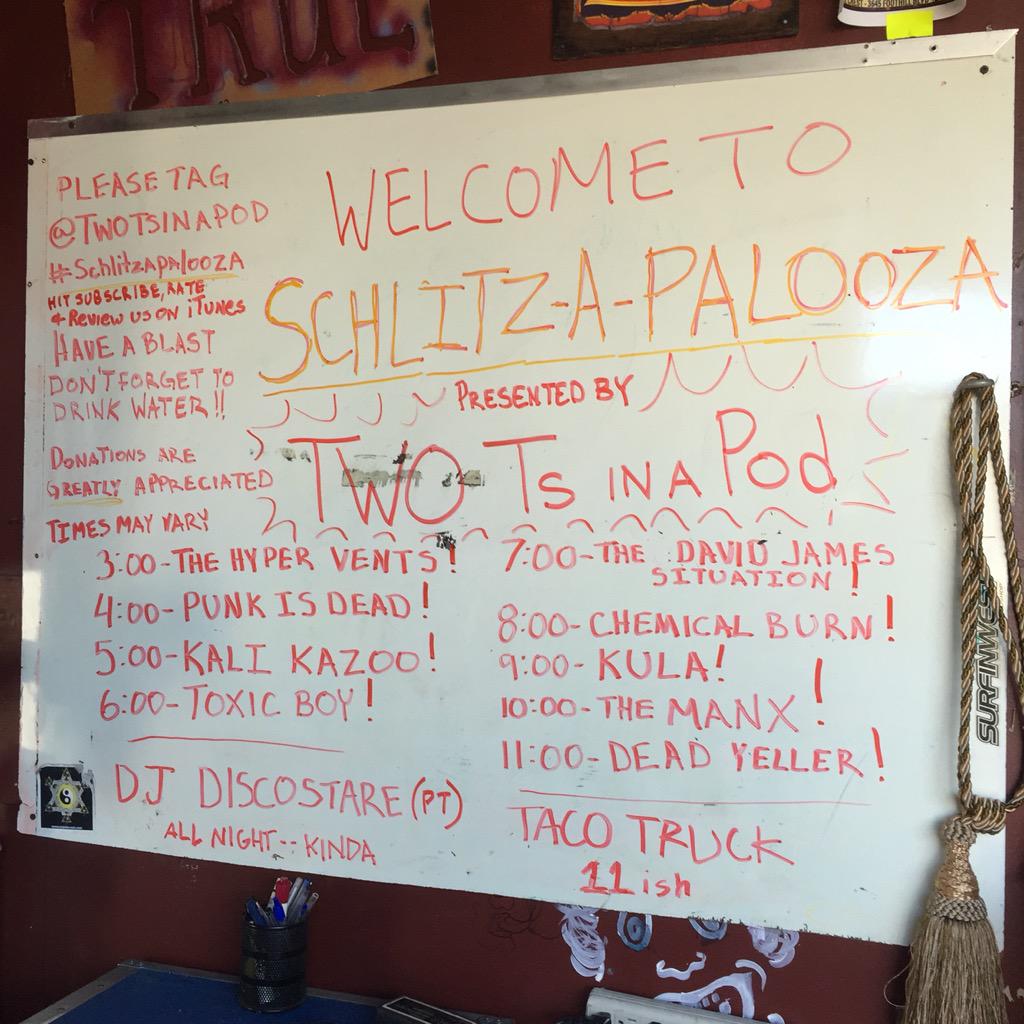 TRUE
-3645 FOOTHILL BLVD
WELCOME TO
SCHLITZ-A-PALOOZA
PRESENTED BY
TWO Ts IN A Pod
PLEASE TAG
@TWOTSINAPOD
#SchlitzapalooZA
HIT SUBSCRIBE, RATE
+ REVIEW US ON iTUNES
HAVE A BLAST
DON'T FORGET TO
DRINK WATER!!
DONATIONS ARE
GREATLY APPRECIATED
TIMES MAY VARY
3:00-THE HYPER VENTS!
4:00-PUNK IS DEAD!
5:00-KALI KAZOO!
6:00-TOXIC BOY!
7:00-THE DAVID JAMES
SITUATION!
8:00-CHEMICAL BURN!
9:00-KULA!
10:00-THE MANX!
11:00-DEAD YELLER!
DJ DISCOSTARE (PT)
ALL NIGHT -- KINDA
TACO TRUCK
11ish
SURFINWES